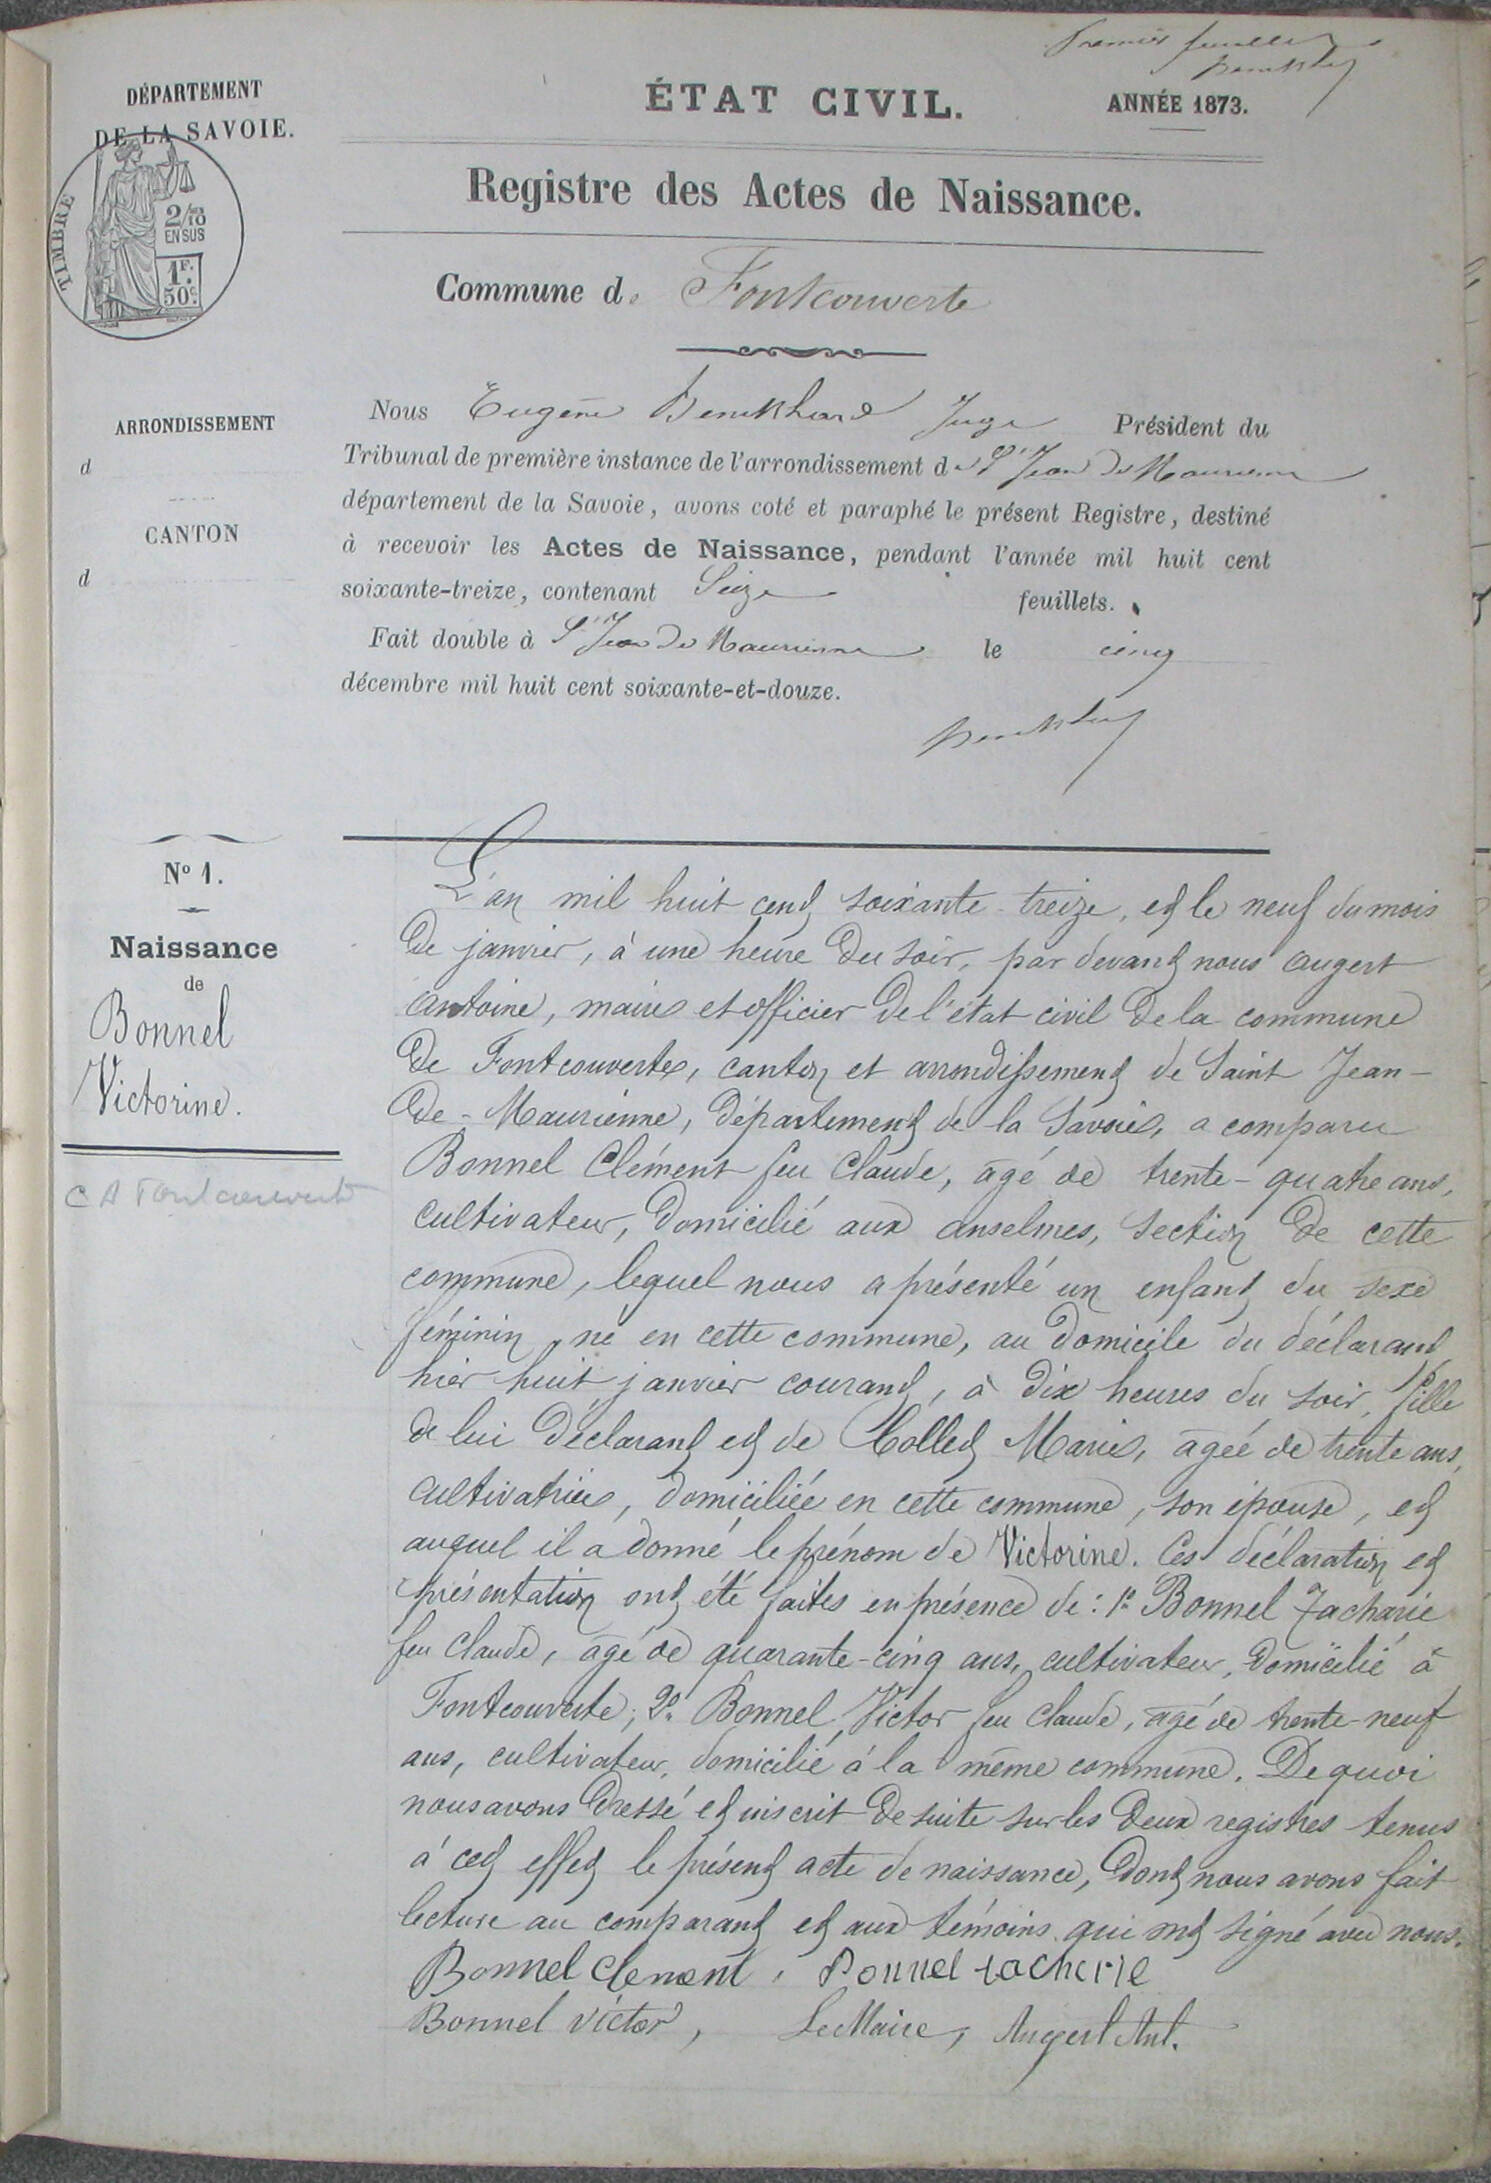 Premier feuillet
DÉPARTEMENT
DE LA SAVOIE.
TIMBRE
2/10
EN SUS
1F.
50c.
ÉTAT CIVIL.
ANNÉE 1873.
Registre des Actes de Naissance.
Commune de Fontcouverte
ARRONDISSEMENT
d
CANTON
d
Nous Eugène Juge Président du
Tribunal de première instance de l'arrondissement de St Jean de Maurienne
département de la Savoie, avons coté et paraphé le présent Registre, destiné
à recevoir les Actes de Naissance, pendant l'année mil huit cent
soixante-treize, contenant Seize feuillets.
Fait double à St Jean de Maurienne le cinq
décembre mil huit cent soixante-et-douze.
No 1.
Naissance
de
Bonnel
Victorine.
C A Fontcouverte
L'an mil huit cent soixante-treize, et le neuf du mois
de janvier, à une heure du soir, par devant nous augert
antoine, maire et officier de l'état civil de la commune
de Fontcouverte, canton et arrondissement de Saint Jean-
de-Maurienne, département de la Savoie, a comparu
Bonnel Clément feu Claude, âgé de trente-quatre ans,
cultivateur, domicilié aux anselmes, section de cette
commune, lequel nous a présenté un enfant du sexe
féminin, né en cette commune, au domicile du déclarant,
hier huit janvier courant, à dix heures du soir, fille
de lui déclarant et de Collet Marie, âgée de trente ans,
cultivatrice, domiciliée en cette commune, son épouse, et
auquel il a donné le prénom de Victorine. Ces déclaration et
présentation ont été faites en présence de : 1o Bonnel Zacharie
feu Claude, âgé de quarante-cinq ans, cultivateur, domicilié à
Fontcouverte; 2o Bonnel Victor feu Claude, âgé de trente-neuf
ans, cultivateur, domicilié à la même commune. De quoi
nous avons dressé et inscrit de suite sur les deux registres tenus
à cet effet le présent acte de naissance, dont nous avons fait
lecture au comparant et aux témoins qui ont signé avec nous.
Bonnel Clement, Bonnel zacherie
Bonnel Victor, Le Maire, Augert Ant.